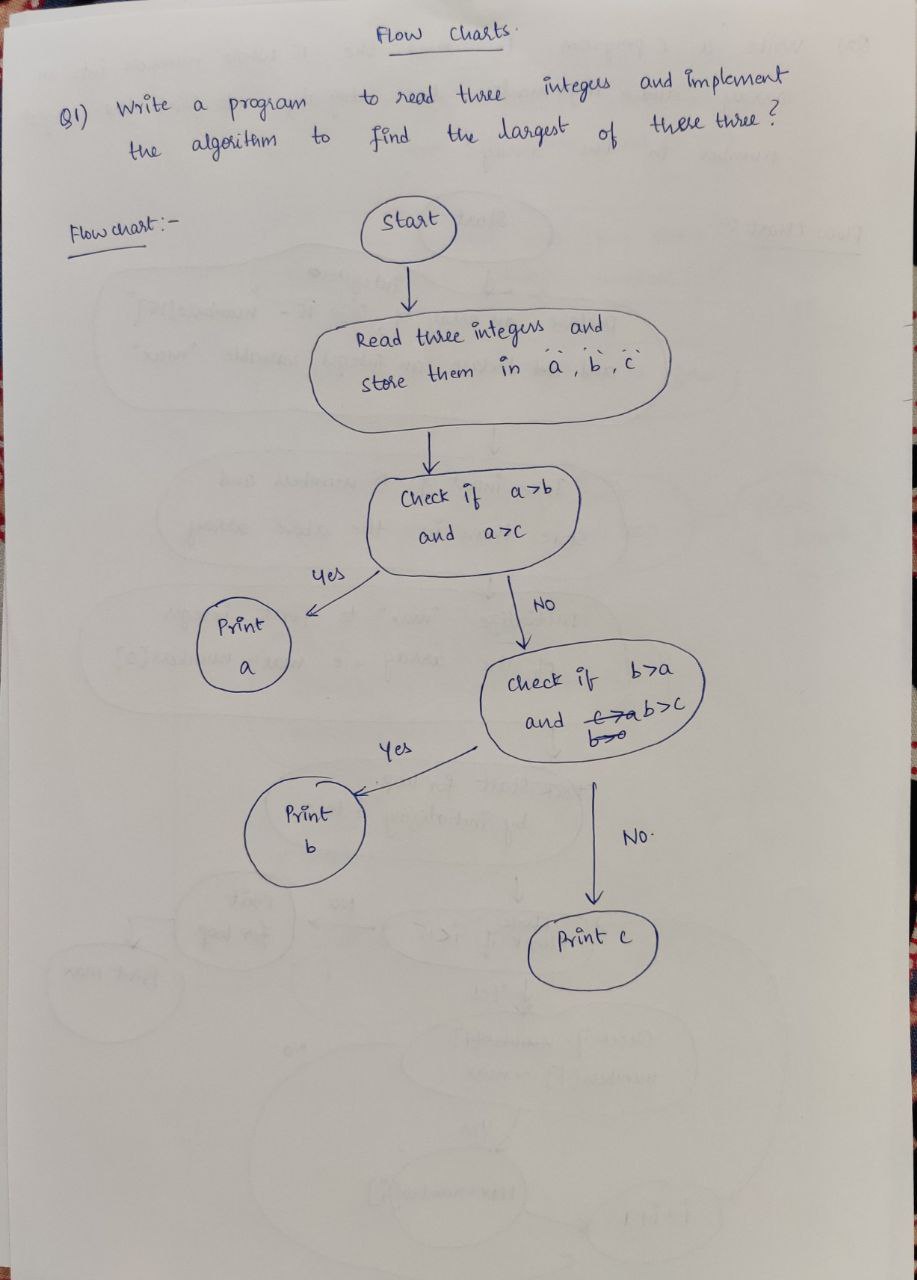 Flow Charts.
Q1) Write a program to read three integers and implement
the algorithm to find the largest of these three?
Flow chart:-
Start
Read three integers and
store them in "a", "b", "c"
Check if a>b
and a>c
Yes
NO
Print
a
Check if b>a
and c>a b>c
Yes
Print
b
No.
Print c